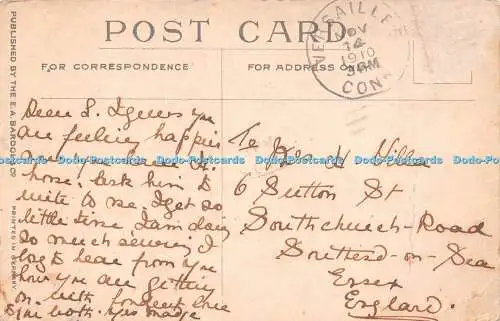 POST CARD
FOR CORRESPONDENCE
FOR ADDRESS ON
VERSAILLES
NOV
14
1910
3 PM
CONN
PUBLISHED BY THE E. A. BARDOL CO.
PRINTED IN GERMANY.
Dear S. I guess you
are feeling happier
now you have
home. Ask him to
write to me. I get so
little time I am doing
so much sewing I
long to hear from you
how you are getting
on. with fondest love
to you both.
To
H Villa
6 Sutton St
Southchurch-Road
Southend-on-Sea
Essex
England.
Dodo-Postcards Dodo-Postcards Dodo-Postcards Dodo-Postcards Dodo-Postcards